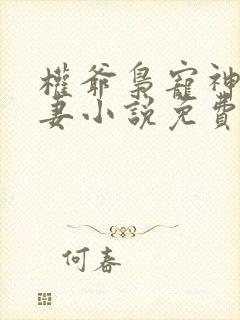 權爺梟寵神
妻小説免費
何春